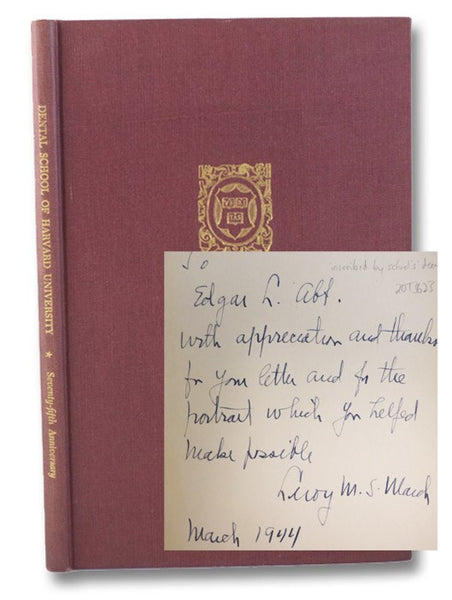 DENTAL SCHOOL OF HARVARD UNIVERSITY ★ Seventy-fifth Anniversary
VE RI
TAS
To
inscribed by school's dean
Edgar L. Abt.
with appreciation and thanks
for your letter and for the
portrait which you helped
make possible
Leroy M. S. Miner
March 1944